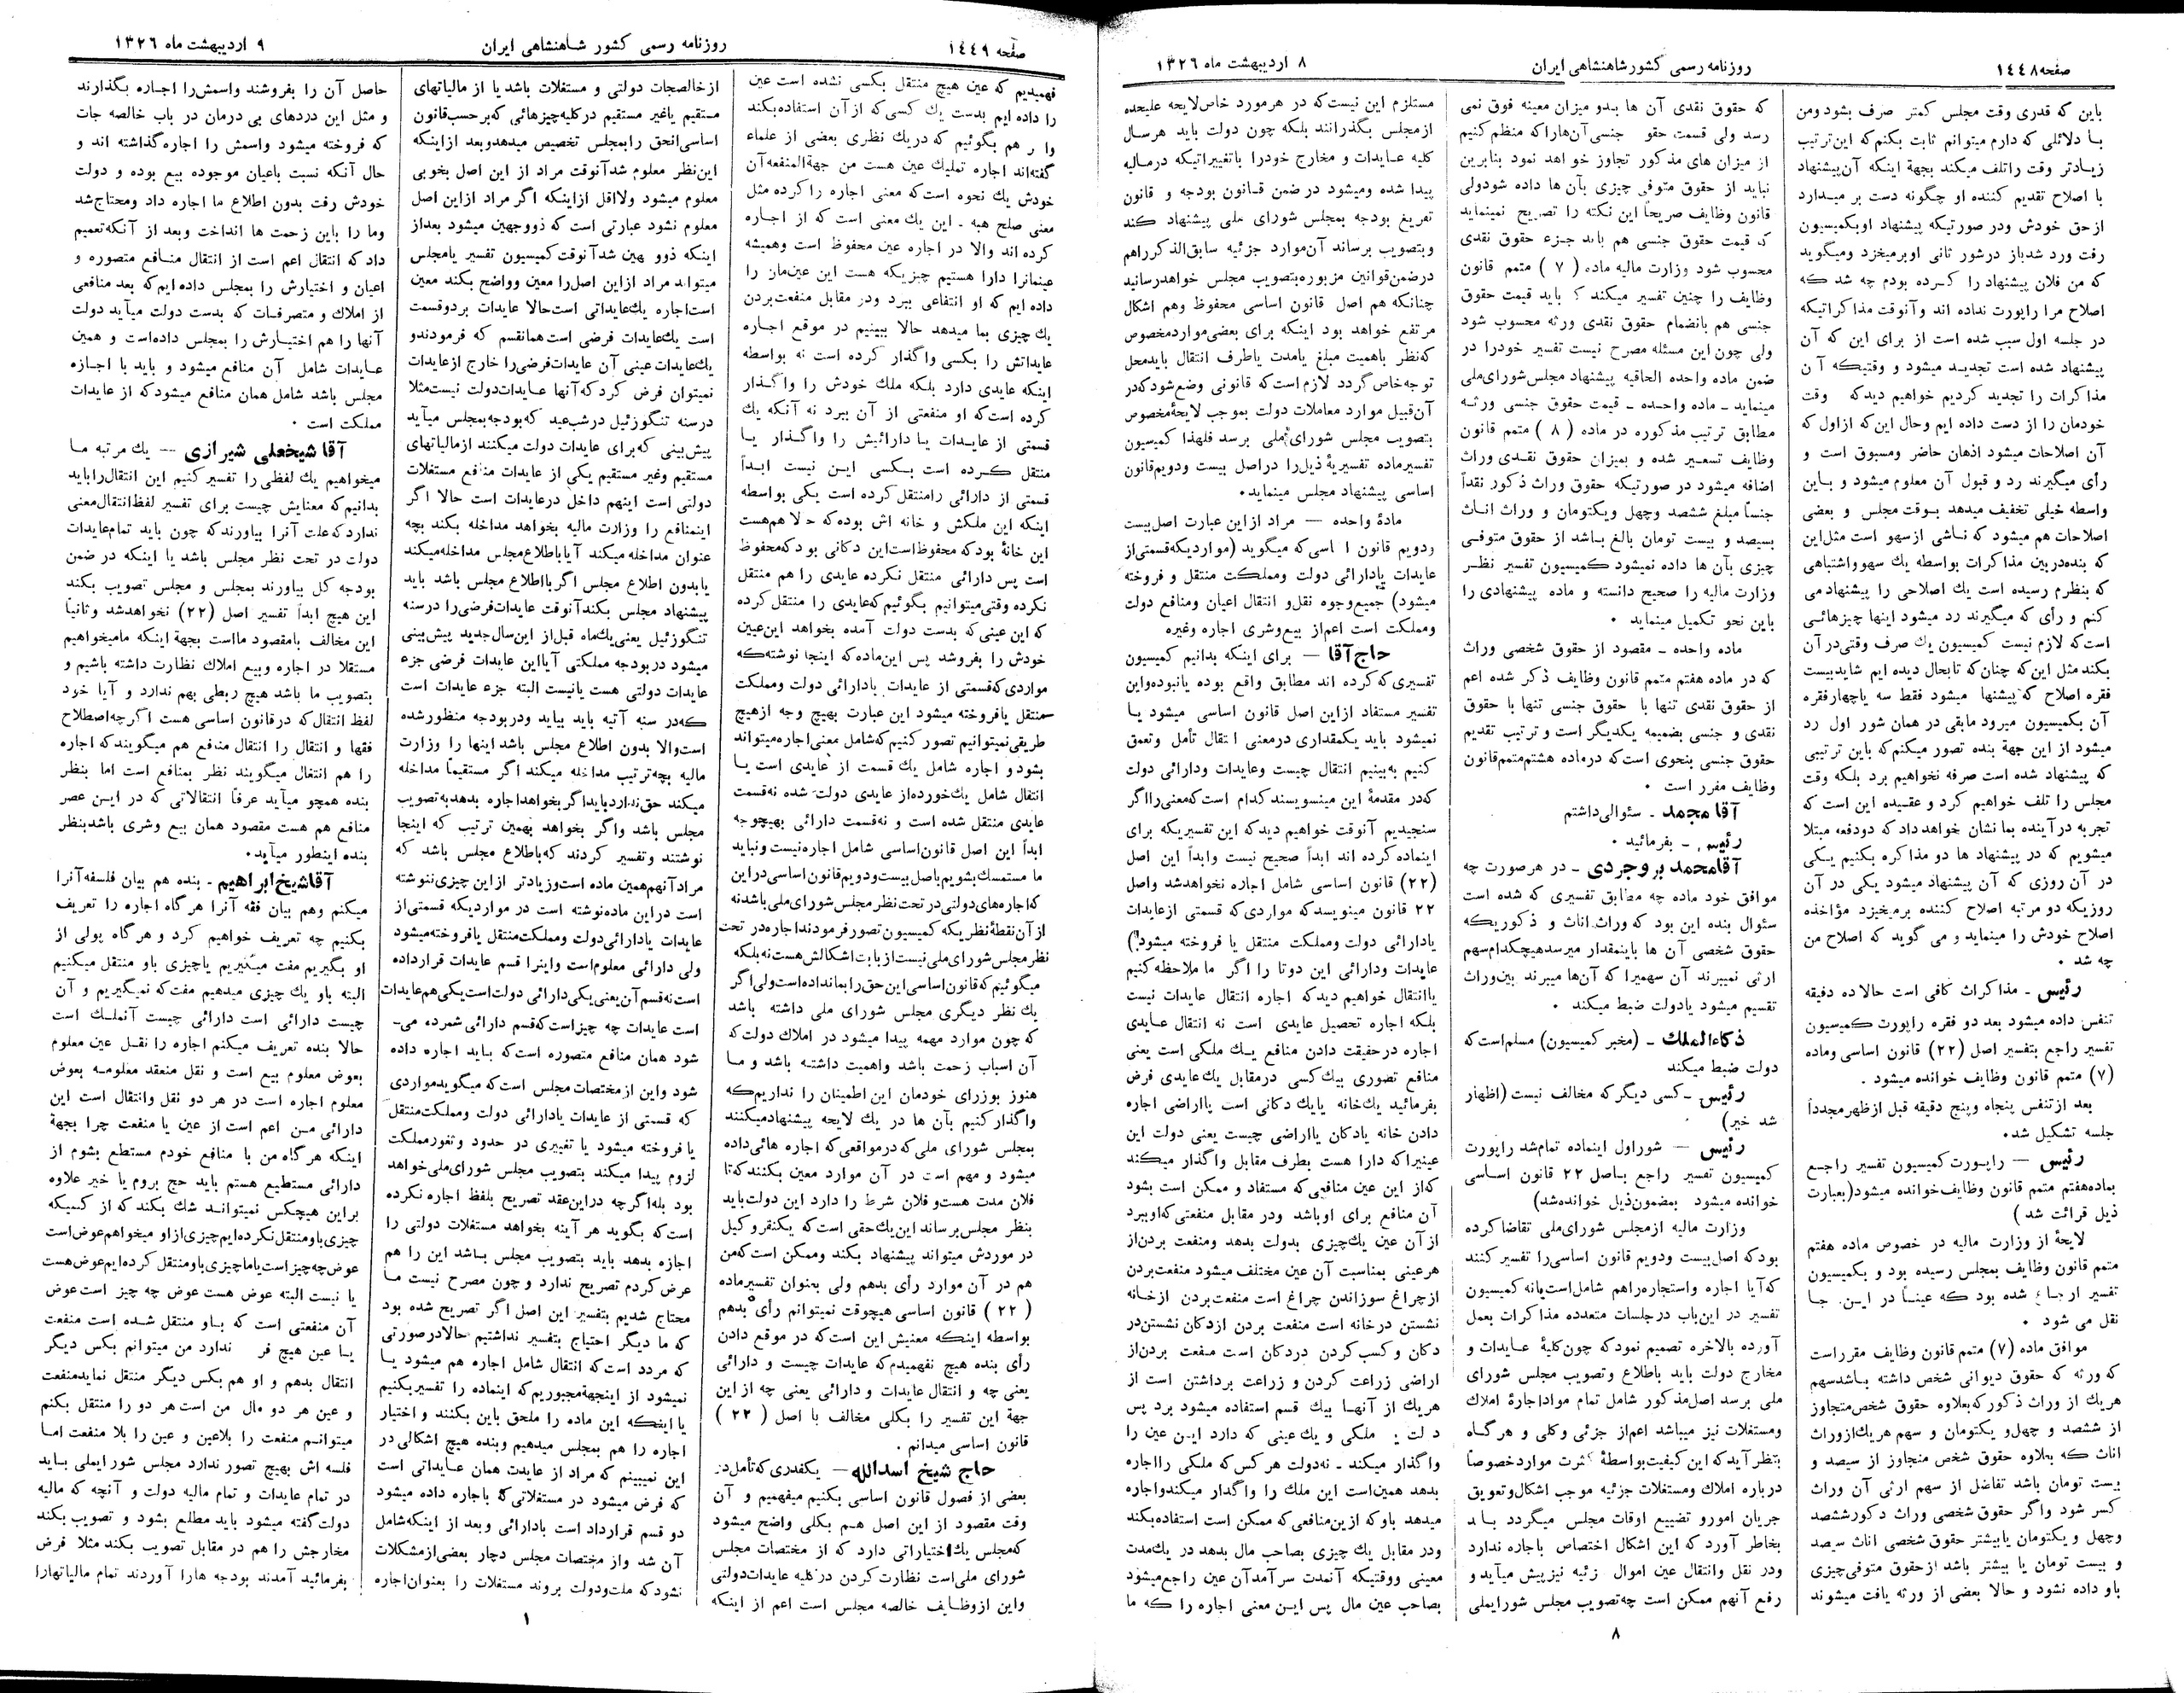 صفحه ۱٤٤۸
روزنامه رسمی کشور شاهنشاهی ایران
۸ اردیبهشت ماه ۱۳۲٦
باین که قدری وقت مجلس کمتر صرف بشود ومن
با دلائلی که دارم میتوانم ثابت بکنم که این ترتیب
زیادتر وقت را تلف میکند بجهة اینکه آن پیشنهاد
با اصلاح تقدیم کننده او چگونه دست بر میدارد
از حق خودش ودر صورتیکه پیشنهاد او بکمیسیون
رفت ورد شد باز درشور ثانی او بر میخزد ومیگوید
که من فلان پیشنهاد را کرده بودم چه شد که
اصلاح مرا راپورت نداده اند وآنوقت مذاکراتیکه
در جلسه اول سبب شده است از برای این که آن
پیشنهاد شده است تجدید میشود و وقتیکه آن
مذاکرات را تجدید کردیم خواهیم دید که وقت
خودمان را از دست داده ایم وحال این که از اول که
آن اصلاحات میشود اذهان حاضر ومسبوق است و
رأی میگیرند رد و قبول آن معلوم میشود و باین
واسطه خیلی تخفیف میدهد بوقت مجلس و بعضی
اصلاحات هم میشود که ناشی از سهو است مثل این
که بنده در بین مذاکرات بواسطه یك سهو واشتباهی
که بنظرم رسیده است یك اصلاحی را پیشنهاد می
کنم و رأی که میگیرند رد میشود اینها چیزهائی
است که لازم نیست کمیسیون یك صرف وقتی در آن
بکند مثل این که چنان که تا بحال دیده ایم شاید بیست
فقره اصلاح که پیشنها میشود فقط سه یا چهار فقره
آن بکمیسیون میرود مابقی در همان شور اول رد
میشود از این جهة بنده تصور میکنم که باین ترتیبی
که پیشنهاد شده است صرفه نخواهیم برد بلکه وقت
مجلس را تلف خواهیم کرد و عقیده این است که
تجربه در آینده بما نشان خواهد داد که دودفعه مبتلا
میشویم که در پیشنهاد ها دو مذاکره بکنیم یکی
در آن روزی که آن پیشنهاد میشود یکی در آن
روزیکه دو مرتبه اصلاح کننده برمیخیزد مؤاخذه
اصلاح خودش را مینماید و می گوید که اصلاح من
چه شد ۰
رئیس ـ مذاکرات کافی است حالا ده دقیقه
تنفس داده میشود بعد دو فقره راپورت کمیسیون
تفسیر راجع بتفسیر اصل (۲۲) قانون اساسی وماده
(۷) متمم قانون وظایف خوانده میشود .
بعد از تنفس پنجاه وپنج دقیقه قبل از ظهر مجدداً
جلسه تشکیل شد۰
رئیس — راپورت کمیسیون تفسیر راجع
بماده هفتم متمم قانون وظایف خوانده میشود (بعبارت
ذیل قرائت شد )
لایحهٔ از وزارت مالیه در خصوص ماده هفتم
متمم قانون وظایف بمجلس رسیده بود و بکمیسیون
تفسیر ارجاع شده بود که عیناً در این جا
نقل می شود ۰
موافق ماده (۷) متمم قانون وظایف مقرر است
که ورثه که حقوق دیوانی شخص داشته باشد سهم
هر یك از وراث ذکور که بعلاوه حقوق شخص متجاوز
از ششصد و چهل و یکتومان و سهم هر یك از وراث
اناث که بعلاوه حقوق شخص متجاوز از سیصد و
بیست تومان باشد تفاضل از سهم ارثی آن وراث
کسر شود واگر حقوق شخصی وراث ذکور ششصد
وچهل و یکتومان یا بیشتر حقوق شخصی اناث سیصد
و بیست تومان یا بیشتر باشد از حقوق متوفی چیزی
باو داده نشود و حالا بعضی از ورثه یافت میشوند
که حقوق نقدی آن ها بدو میزان معینه فوق نمی
رسد ولی قسمت حقو جنسی آن ها را که منظم کنیم
از میزان های مذکور تجاوز خواهد نمود بنابرین
نباید از حقوق متوفی چیزی بآن ها داده شود ولی
قانون وظایف صریحاً این نکته را تصریح نمینماید
که قیمت حقوق جنسی هم باید جزء حقوق نقدی
محسوب شود وزارت مالیه ماده ( ۷ ) متمم قانون
وظایف را چنین تفسیر میکند که باید قیمت حقوق
جنسی هم بانضمام حقوق نقدی ورثه محسوب شود
ولی چون این مسئله مصرح نیست تفسیر خودرا در
ضمن ماده واحده الحاقیه پیشنهاد مجلس شورای ملی
مینماید ـ ماده واحده ـ قیمت حقوق جنسی ورثه
مطابق ترتیب مذکوره در ماده ( ۸ ) متمم قانون
وظایف تسعیر شده و بمیزان حقوق نقدی وراث
اضافه میشود در صورتیکه حقوق وراث ذکور نقداً
جنساً مبلغ ششصد وچهل ویکتومان و وراث اناث
بسیصد و بیست تومان بالغ باشد از حقوق متوفی
چیزی بآن ها داده نمیشود کمیسیون تفسیر نظر
وزارت مالیه را صحیح دانسته و ماده پیشنهادی را
باین نحو تکمیل مینماید ۰
ماده واحده ـ مقصود از حقوق شخصی وراث
که در ماده هفتم متمم قانون وظایف ذکر شده اعم
از حقوق نقدی تنها با حقوق جنسی تنها با حقوق
نقدی و جنسی بضمیمه یکدیگر است و ترتیب تقدیم
حقوق جنسی بنحوی است که در ماده هشتم متمم قانون
وظایف مقرر است ۰
آقا محمد ـ سئوالی داشتم
رئیس ـ بفرمائید ۰
آقا محمد بروجردی ـ در هر صورت چه
موافق خود ماده چه مطابق تفسیری که شده است
سئوال بنده این بود که وراث اناث و ذکوریکه
حقوق شخصی آن ها باینمقدار میرسد هیچکدام سهم
ارثی نمیبرند آن سهمیرا که آن ها میبرند بین وراث
تقسیم میشود یا دولت ضبط میکند ۰
ذکاءالملك ـ (مخبر کمیسیون) مسلم است که
دولت ضبط میکند
رئیس ـ کسی دیگر که مخالف نیست (اظهار
شد خیر)
رئیس — شور اول اینماده تمام شد راپورت
کمیسیون تفسیر راجع باصل ۲۲ قانون اساسی
خوانده میشود بمضمون ذیل خوانده شد)
وزارت مالیه از مجلس شورای ملی تقاضا کرده
بود که اصل بیست ودویم قانون اساسی را تفسیر کنند
که آیا اجاره واستجاره را هم شامل است یا نه کمیسیون
تفسیر در این باب در جلسات متعدده مذاکرات بعمل
آورده بالاخره تصمیم نمود که چون کلیهٔ عایدات و
مخارج دولت باید باطلاع وتصویب مجلس شورای
ملی برسد اصل مذکور شامل تمام مواد اجارهٔ املاك
ومستغلات نیز میباشد اعم از جزئی وکلی و هر گاه
بنظر آید که این کیفیت بواسطهٔ کثرت موارد خصوصاً
درباره املاك ومستغلات جزئیه موجب اشکال وتعویق
جریان امور و تضییع اوقات مجلس میگردد باید
بخاطر آورد که این اشکال اختصاص باجاره ندارد
ودر نقل وانتقال عین اموال زئیه نیز پیش میآید و
رفع آنهم ممکن است چه تصویب مجلس شورایملی
مستلزم این نیست که در هر مورد خاص لایحه علیحده
از مجلس بگذرانند بلکه چون دولت باید هر سال
کلیه عایدات و مخارج خود را با تغییراتیکه در مالیه
پیدا شده ومیشود در ضمن قانون بودجه و قانون
تفریغ بودجه بمجلس شورای ملی پیشنهاد کند
وبتصویب برساند آن موارد جزئیه سابق الذکر را هم
در ضمن قوانین مزبوره بتصویب مجلس خواهد رسانید
چنانکه هم اصل قانون اساسی محفوظ وهم اشکال
مرتفع خواهد بود اینکه برای بعضی موارد مخصوص
که نظر باهمیت مبلغ یا مدت یا طرف انتقال باید محل
توجه خاص گردد لازم است که قانونی وضع شود که در
آن قبیل موارد معاملات دولت بموجب لایحهٔ مخصوص
بتصویب مجلس شورای ملی برسد فلهذا کمیسیون
تفسیر ماده تفسیریهٔ ذیل را در اصل بیست ودویم قانون
اساسی پیشنهاد مجلس مینماید۰
مادهٔ واحده — مراد از این عبارت اصل بیست
ودویم قانون ا اسی که میگوید (مواردیکه قسمتی از
عایدات یا دارائی دولت ومملکت منتقل و فروخته
میشود) جمیع وجوه نقل و انتقال اعیان ومنافع دولت
ومملکت است اعم از بیع وشری اجاره وغیره
حاج آقا — برای اینکه بدانیم کمیسیون
تفسیری که کرده اند مطابق واقع بوده یا نبوده واین
تفسیر مستفاد از این اصل قانون اساسی میشود یا
نمیشود باید یکمقداری در معنی انتقال تأمل وتعمق
کنیم به بینیم انتقال چیست وعایدات ودارائی دولت
که در مقدمهٔ این مینسویسند کدام است که معنی را اگر
سنجیدیم آنوقت خواهیم دید که این تفسیریکه برای
اینماده کرده اند ابداً صحیح نیست وابداً این اصل
(۲۲) قانون اساسی شامل اجاره نخواهد شد واصل
۲۲ قانون مینویسد که مواردی که قسمتی از عایدات
یا دارائی دولت ومملکت منتقل یا فروخته میشود)
عایدات ودارائی این دوتا را اگر ما ملاحظه کنیم
یا انتقال خواهیم دید که اجاره انتقال عایدات نیست
بلکه اجاره تحصیل عایدی است نه انتقال عایدی
اجاره در حقیقت دادن منافع یك ملکی است یعنی
منافع تصوری بیك کسی در مقابل یك عایدی فرض
بفرمائید یك خانه یا یك دکانی است یا اراضی اجاره
دادن خانه یا دکان یا اراضی چیست یعنی دولت این
عینیرا که دارا هست بطرف مقابل واگذار میکند
که از این عین منافعی که مستفاد و ممکن است بشود
آن منافع برای او باشد ودر مقابل منفعتی که او ببرد
از آن عین یك چیزی بدولت بدهد ومنفعت بردن از
هر عینی بمناسبت آن عین مختلف میشود منفعت بردن
از چراغ سوزاندن چراغ است منفعت بردن از خانه
نشستن در خانه است منفعت بردن از دکان نشستن در
دکان و کسب کردن در دکان است منفعت بردن از
اراضی زراعت کردن و زراعت برداشتن است از
هر یك از آنها بیك قسم استفاده میشود برد پس
دولت یك ملکی و یك عینی که دارد این عین را
واگذار میکند ـ نه دولت هر کس که ملکی را اجاره
بدهد همین است این ملك را واگذار میکند واجاره
میدهد باو که از ین منافعی که ممکن است استفاده بکند
ودر مقابل یك چیزی بصاحب مال بدهد در یك مدت
معینی ووقتیکه آنمدت سر آمد آن عین راجع میشود
بصاحب عین مال پس این معنی اجاره را که ما
۸
صفحه ۱٤٤۹
روزنامه رسمی کشور شاهنشاهی ایران
۹ اردیبهشت ماه ۱۳۲٦
فهمیدیم که عین هیچ منتقل بکسی نشده است عین
را داده ایم بدست یك کسی که از آن استفاده بکند
وا ر هم بگوئیم که در یك نظری بعضی از علماء
گفته اند اجاره تملیك عین هست من جهة المنفعه آن
خودش یك نحوه است که معنی اجاره را کرده مثل
معنی صلح هبه ـ این یك معنی است که از اجاره
کرده اند والا در اجاره عین محفوظ است وهمیشه
عینمانرا دارا هستیم چیزیکه هست این عین مان را
داده ایم که او انتفاعی ببرد ودر مقابل منفعت بردن
یك چیزی بما میدهد حالا ببینیم در موقع اجاره
عایداتش را بکسی واگذار کرده است نه بواسطه
اینکه عایدی دارد بلکه ملك خودش را واگذار
کرده است که او منفعتی از آن ببرد نه آنکه یك
قسمتی از عایدات یا دارائیش را واگذار یا
منتقل کرده است بکسی این نیست ابداً
قسمتی از دارائی را منتقل کرده است یکی بواسطه
اینکه این ملکش و خانه اش بوده که حالا هم هست
این خانهٔ بود که محفوظ است این دکانی بود که محفوظ
است پس دارائی منتقل نکرده عایدی را هم منتقل
نکرده وقتی میتوانیم بگوئیم که عایدی را منتقل کرده
که این عینی که بدست دولت آمده بخواهد این عیین
خودش را بفروشد پس این ماده که اینجا نوشته که
مواردی که قسمتی از عایدات یا دارائی دولت ومملکت
منتقل یا فروخته میشود این عبارت بهیچ وجه از هیچ
طریقی نمیتوانیم تصور کنیم که شامل معنی اجاره میتواند
بشود و اجاره شامل یك قسمت از عایدی است یا
انتقال شامل یك خورده از عایدی دولت شده نه قسمت
عایدی منتقل شده است و نه قسمت دارائی بهیچوجه
ابداً این اصل قانون اساسی شامل اجاره نیست ونباید
ما مستمسك بشویم باصل بیست ودویم قانون اساسی در این
که اجاره های دولتی در تحت نظر مجلس شورای ملی باشد نه
از آن نقطهٔ نظریکه کمیسیون تصور فرمودند اجاره در تحت
نظر مجلس شورای ملی نیست از بابت اشکالش هست نه بلکه
میگوئیم که قانون اساسی این حق را بما نداده است ولی اگر
یك نظر دیگری مجلس شورای ملی داشته باشد
که چون موارد مهمه پیدا میشود در املاك دولت که
آن اسباب زحمت باشد واهمیت داشته باشد و ما
هنوز بوزرای خودمان این اطمینان را نداریم که
واگذار کنیم بآن ها در یك لایحه پیشنهاد میکنند
بمجلس شورای ملی که در مواقعی که اجاره هائی داده
میشود و مهم است در آن موارد معین بکنند که تا
فلان مدت هست و فلان شرط را دارد این دولت باید
بنظر مجلس برساند این یك حقی است که یکنفر وکیل
در موردش میتواند پیشنهاد بکند وممکن است که من
هم در آن موارد رأی بدهم ولی بعنوان تفسیر ماده
( ۲۲ ) قانون اساسی هیچوقت نمیتوانم رأی بدهم
بواسطه اینکه معنیش این است که در موقع دادن
رأی بنده هیچ نفهمیدم که عایدات چیست و دارائی
یعنی چه و انتقال عایدات و دارائی یعنی چه از این
جهة این تفسیر را بکلی مخالف با اصل ( ۲۲ )
قانون اساسی میدانم .
حاج شیخ اسدالله — یکقدری که تأمل در
بعضی از فصول قانون اساسی بکنیم میفهمیم و آن
وقت مقصود از این اصل هم بکلی واضح میشود
که مجلس یك اختیاراتی دارد که از مختصات مجلس
شورای ملی است نظارت کردن در کلیه عایدات دولتی
واین از وظایف خالصه مجلس است اعم از اینکه
از خالصجات دولتی و مستغلات باشد یا از مالیاتهای
مستقیم یا غیر مستقیم در کلیه چیزهائی که بر حسب قانون
اساسی انحق را بمجلس تخصیص میدهد و بعد از اینکه
این نظر معلوم شد آنوقت مراد از این اصل بخوبی
معلوم میشود ولا اقل از اینکه اگر مراد از این اصل
معلوم نشود عبارتی است که ذووجهین میشود بعد از
اینکه ذوو هین شد آنوقت کمیسیون تفسیر یا مجلس
میتواند مراد از این اصل را معین وواضح بکند معین
است اجاره یك عایداتی است حالا عایدات بر دو قسمت
است یك عایدات فرضی است همانقسم که فرمودند و
یك عایدات عینی آن عایدات فرضی را خارج از عایدات
نمیتوان فرض کرد که آنها عایدات دولت نیست مثلا
در سنه تنگوزئیل در شب عید که بودجه بمجلس میآید
پیش بینی که برای عایدات دولت میکنند از مالیاتهای
مستقیم وغیر مستقیم یکی از عایدات منافع مستغلات
دولتی است اینهم داخل در عایدات است حالا اگر
اینمنافع را وزارت مالیه بخواهد مداخله بکند بچه
عنوان مداخله میکند آیا باطلاع مجلس مداخله میکند
یا بدون اطلاع مجلس اگر با اطلاع مجلس باشد باید
پیشنهاد مجلس بکند آنوقت عایدات فرضی را در سنه
تنگوزئیل یعنی یك ماه قبل از این سال جدید پیش بینی
میشود در بودجه مملکتی آیا این عایدات فرضی جزء
عایدات دولتی هست یا نیست البته جزء عایدات است
که در سنه آتیه باید بیاید ودر بودجه منظور شده
است والا بدون اطلاع مجلس باشد اینها را وزارت
مالیه بچه ترتیب مداخله میکند اگر مستقیماً مداخله
میکند حق ندارد باید اگر بخواهد اجاره بدهد به تصویب
مجلس باشد واگر بخواهد بهمین ترتیب که اینجا
نوشتند وتفسیر کردند که باطلاع مجلس باشد که
مراد آنهم همین ماده است وزیادتر از این چیزی ننوشته
است در این ماده نوشته است در مواردیکه قسمتی از
عایدات یا دارائی دولت ومملکت منتقل یا فروخته میشود
ولی دارائی معلوم است واینرا قسم عایدات قرار داده
است نه قسم آن یعنی یکی دارائی دولت است یکی هم عایدات
است عایدات چه چیز است که قسم دارائی شمرده می‌ـ
شود همان منافع متصوره است که باید اجاره داده
شود واین از مختصات مجلس است که میگوید مواردی
که قسمتی از عایدات یا دارائی دولت ومملکت منتقل
یا فروخته میشود یا تغییری در حدود وثغور مملکت
لزوم پیدا میکند بتصویب مجلس شورای ملی خواهد
بود بله اگر چه در این عقد تصریح بلفظ اجاره نکرده
است که بگوید هر آینه بخواهد مستغلات دولتی را
اجازه بدهد باید بتصویب مجلس باشد این را هم
عرض کردم تصریح ندارد و چون مصرح نیست ما
محتاج شدیم بتفسیر این اصل اگر تصریح شده بود
که ما دیگر احتیاج بتفسیر نداشتیم حالا در صورتی
که مردد است که انتقال شامل اجاره هم میشود یا
نمیشود از اینجهة مجبوریم که اینماده را تفسیر بکنیم
یا اینکه این ماده را ملحق باین بکنند و اختیار
اجاره را هم بمجلس میدهیم وبنده هیچ اشکالی در
این نمیبینم که مراد از عایدت همان عایداتی است
که فرض میشود در مستغلاتی که باجاره داده میشود
دو قسم قرارداد است با دارائی وبعد از اینکه شامل
آن شد واز مختصات مجلس دچار بعضی از مشکلات
نشود که ملت و دولت بروند مستغلات را بعنوان اجاره
حاصل آن را بفروشند واسمش را اجاره بگذارند
و مثل این دردهای بی درمان در باب خالصه جات
که فروخته میشود واسمش را اجاره گذاشته اند و
حال آنکه نسبت باعیان موجوده بیع بوده و دولت
خودش رفت بدون اطلاع ما اجاره داد ومحتاج شد
وما را باین زحمت ها انداخت وبعد از آنکه تعمیم
داد که انتقال اعم است از انتقال منافع متصوره و
اعیان و اختیارش را بمجلس داده ایم که بعد منافعی
از املاك و متصرفات که بدست دولت میآید دولت
آنها را هم اختیارش را بمجلس داده است و همین
عایدات شامل آن منافع میشود و باید با اجازه
مجلس باشد شامل همان منافع میشود که از عایدات
مملکت است ۰
آقا شیخعلی شیرازی — یك مرتبه ما
میخواهیم یك لفظی را تفسیر کنیم این انتقال را باید
بدانیم که معنایش چیست برای تفسیر لفظ انتقال معنی
ندارد که علت آنرا بیاورند که چون باید تمام عایدات
دولت در تحت نظر مجلس باشد یا اینکه در ضمن
بودجه کل بیاورند بمجلس و مجلس تصویب بکند
این هیچ ابداً تفسیر اصل (۲۲) نخواهد شد وثانیاً
این مخالف با مقصود ما است بجهة اینکه ما میخواهیم
مستقلا در اجاره وبیع املاك نظارت داشته باشیم و
بتصویب ما باشد هیچ ربطی بهم ندارد و آیا خود
لفظ انتقال که در قانون اساسی هست اگر چه اصطلاح
فقها و انتقال را انتقال منافع هم میگویند که اجاره
را هم انتقال میگویند نظر بمنافع است اما بنظر
بنده همچو میآید عرفاً انتقالاتی که در این عصر
منافع هم هست مقصود همان بیع وشری باشد بنظر
بنده اینطور میآید۰
آقا شیخ ابراهیم ـ بنده هم بیان فلسفه آنرا
میکنم وهم بیان فقه آنرا هر گاه اجاره را تعریف
بکنیم چه تعریف خواهیم کرد و هر گاه پولی از
او بگیریم مفت میگیریم یا چیزی باو منتقل میکنیم
البته باو یك چیزی میدهیم مفت که نمیگیریم و آن
چیست دارائی است دارائی چیست آنملك است
حالا بنده تعریف میکنم اجاره را نقل عین معلوم
بعوض معلوم بیع است و نقل منعقد معلومه بعوض
معلوم اجاره است در هر دو نقل وانتقال است این
دارائی من اعم است از عین یا منفعت چرا بجهة
اینکه هر گاه من با منافع خودم مستطع بشوم از
دارائی مستطیع هستم باید حج بروم یا خیر علاوه
براین هیچکس نمیتواند شك بکند که از کسیکه
چیزی باو منتقل نکرده ایم چیزی از او میخواهم عوض است
عوض چه چیز است یا ما چیزی باو منتقل کرده ایم عوض هست
یا نیست البته عوض هست عوض چه چیز است عوض
آن منفعتی است که باو منتقل شده است منفعت
یا عین هیچ فر ندارد من میتوانم بکس دیگر
انتقال بدهم و او هم بکس دیگر منتقل نماید منفعت
و عین هر دو مال من است هر دو را منتقل بکنم
میتوانم منفعت را بلا عین و عین را بلا منفعت اما
فلسه اش بهیچ تصور ندارد مجلس شورایملی باید
در تمام عایدات و تمام مالیه دولت و آنچه که مالیه
دولت گفته میشود باید مطلع بشود و تصویب بکند
مخارجش را هم در مقابل تصویب بکند مثلا فرض
بفرمائید آمدند بودجه هارا آوردند تمام مالیاتهارا
۱